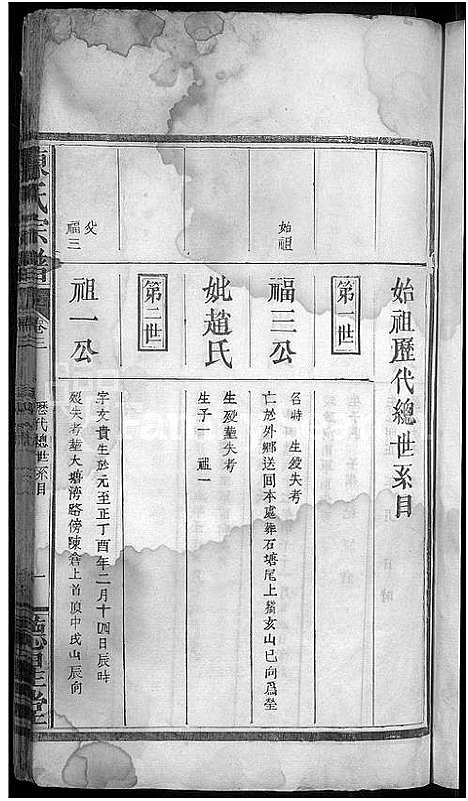 始祖歷代總世系目
第一世
始祖
福三公
名時 生歿失考
亡於外鄉送回本處葬石塘尾上貓亥山巳向爲塋
妣趙氏
生歿塟失考
生子一 祖一
第二世
父
福三
祖一公
字文貴生於元至正丁酉年二月十四日辰時
歿失考塟大塘湾路傍陳倉上首頂中戌山辰向
陳氏宗譜
卷三
歷代總世系目
一